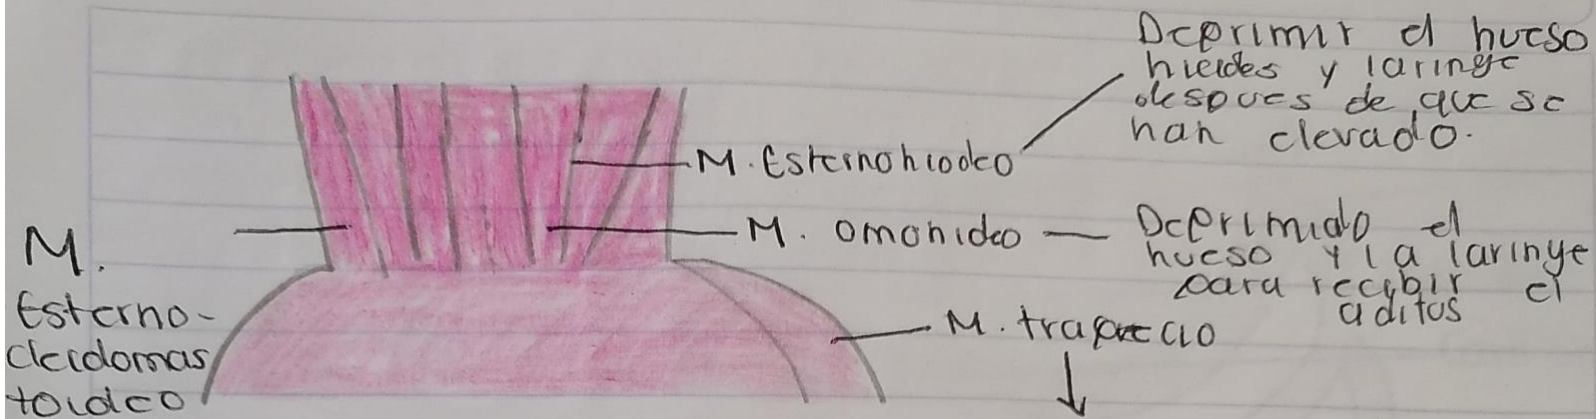 Deprimir el hueso
hieides y laringe
despues de que se
han elevado.
M. Esternohiodeo
M. omohideo
Deprimido el
hueso y la laringe
para recibir el
aditus
M.
Esterno-
cleidomas
toideo
M. trapecio